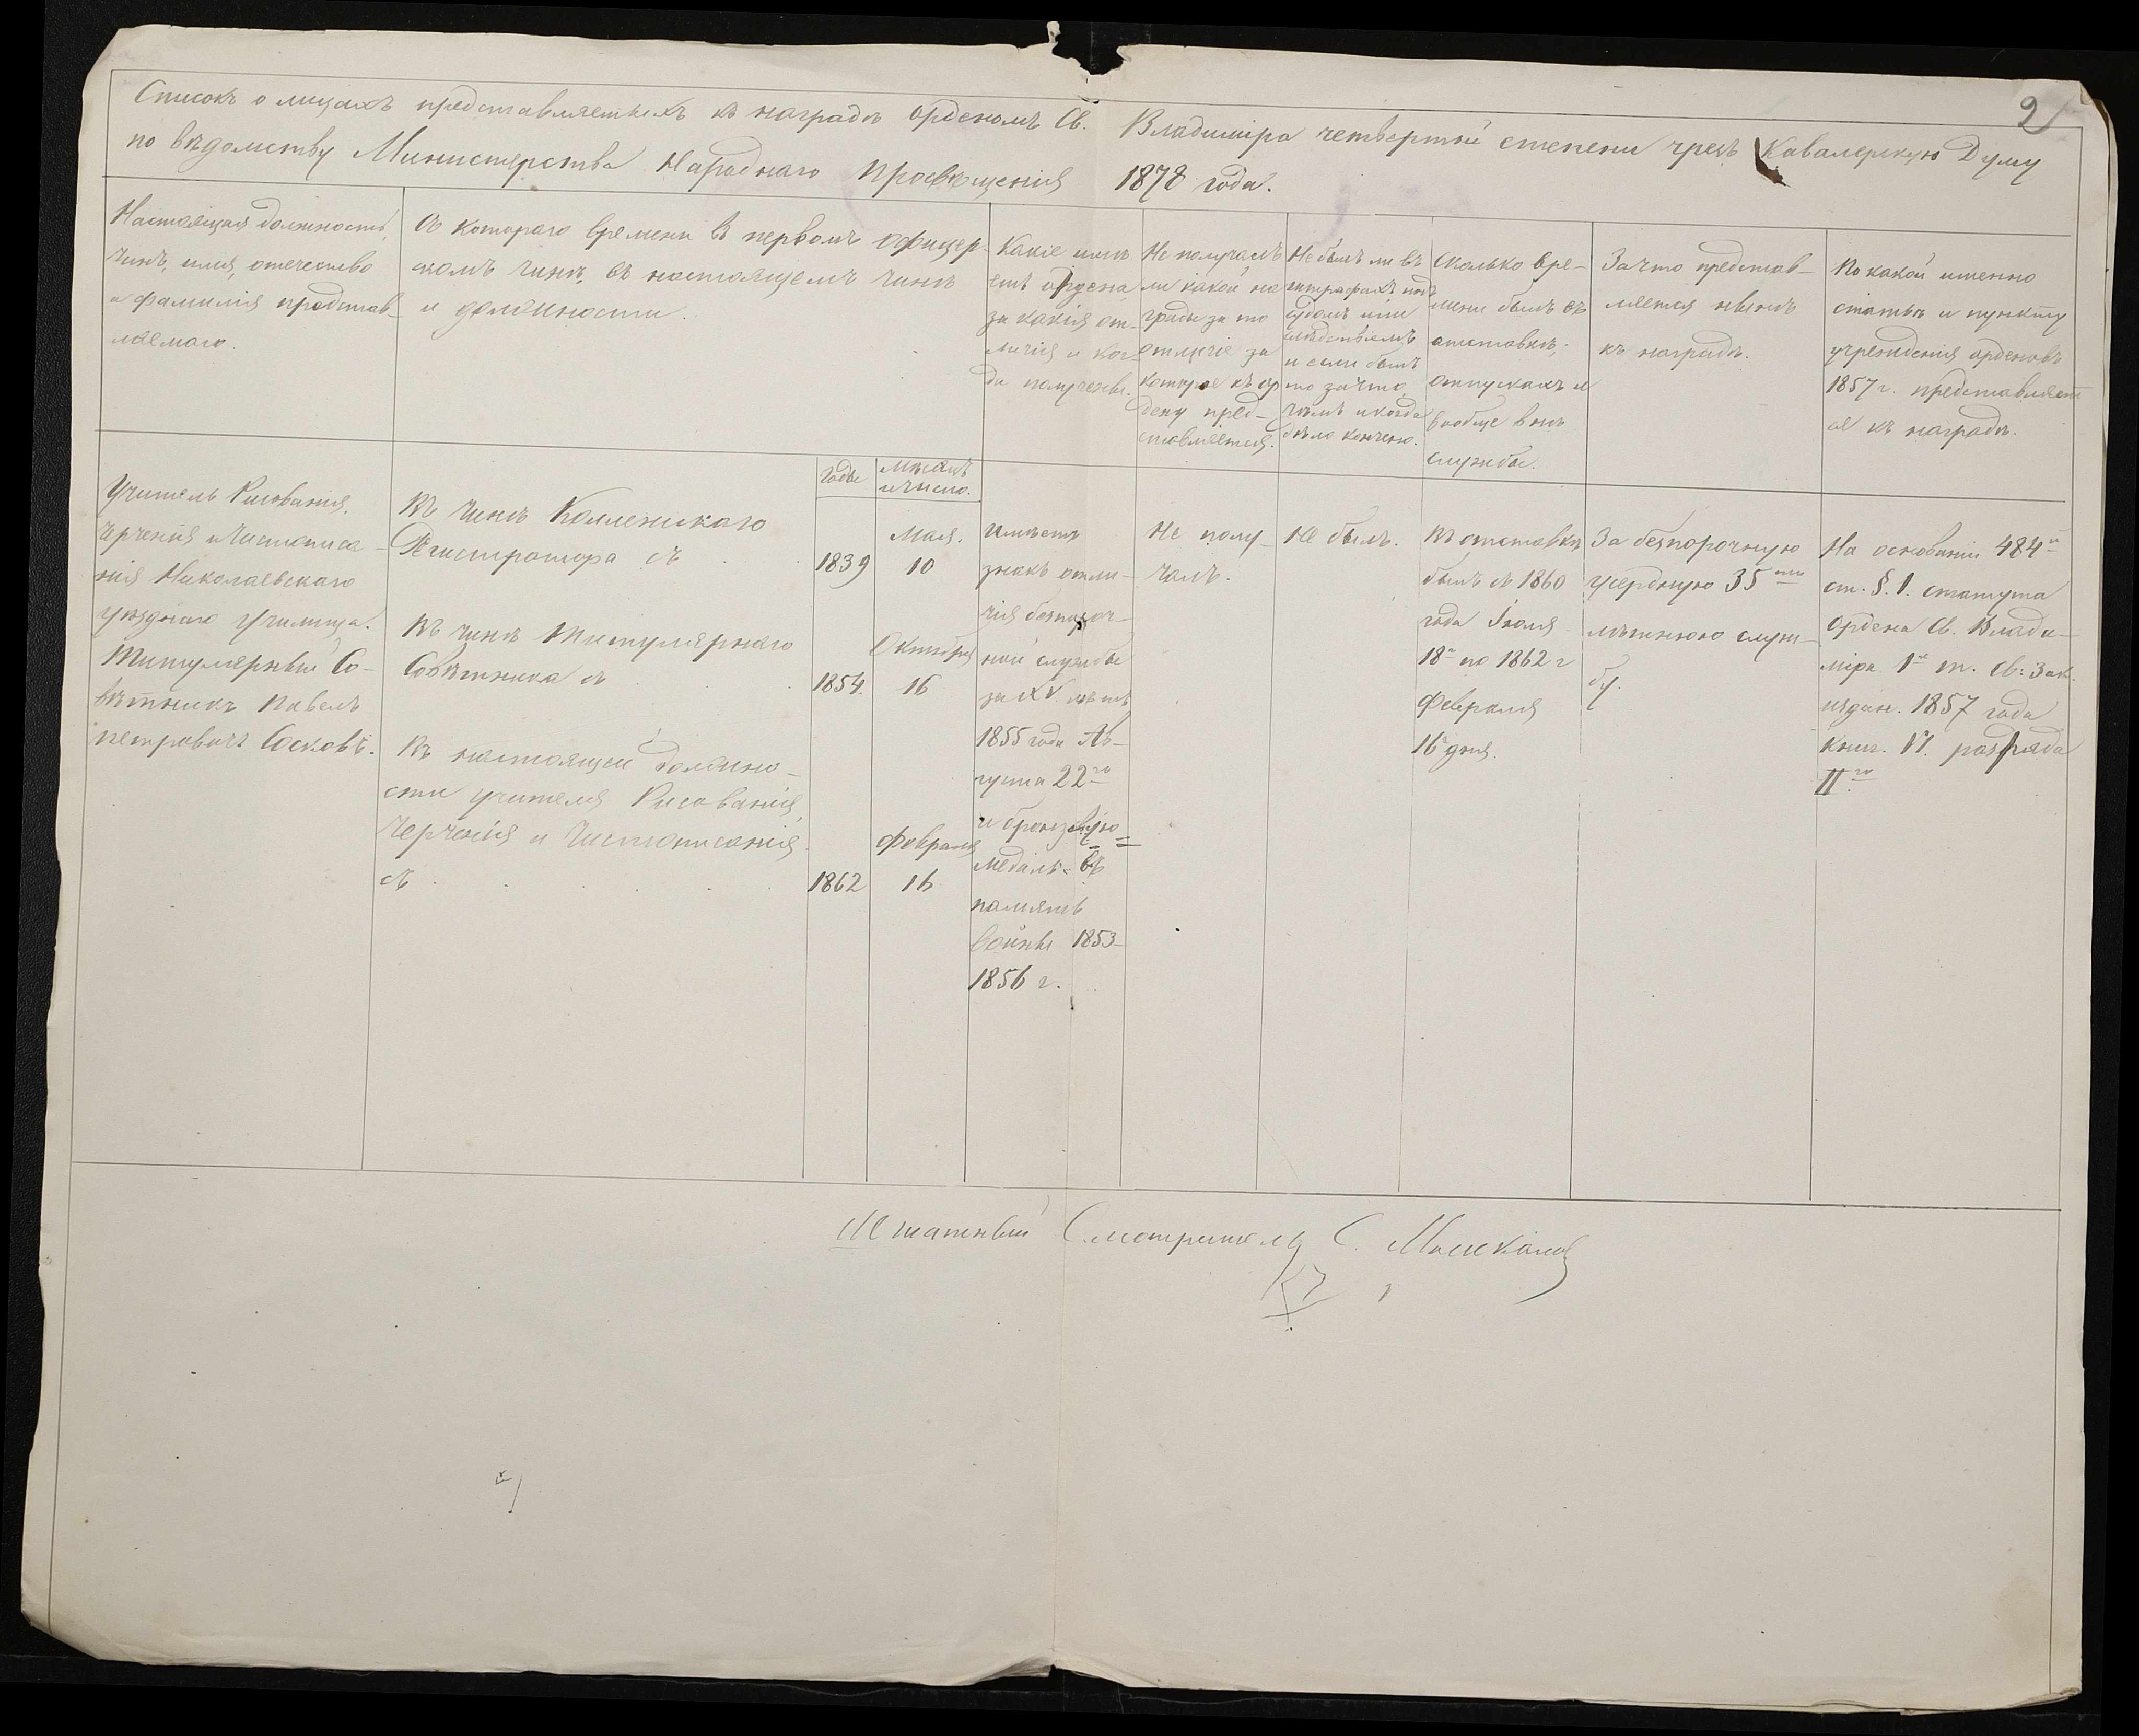 2
Списокъ о лицахъ представляемыхъ къ наградѣ орденомъ Св. Владиміра четвертой степени чрезъ Кавалерскую Думу
по вѣдомству Министерства Народнаго Просвѣщенія 1878 года.
Настоящая должность,
чинъ, имя, отечество
и фамилія представ-
ляемаго.
Съ котораго времени въ первомъ офицер-
скомъ чинѣ, въ настоящемъ чинѣ
и должности.
Какіе имѣ-
етъ ордена,
за какія от-
личія и ког-
да получены.
Не получалъ
ли какой на
грады за то
отличіе за
которое къ ор
дену пред-
ставляется.
Не былъ ли въ
штрафахъ подъ
судомъ или
слѣдствіемъ
и если былъ
то за что,
чѣмъ и когда
дѣло кончено.
Сколько вре-
мени былъ въ
отставкѣ,
отпускахъ и
вообще внѣ
службы.
За что представ-
ляется нынѣ
къ наградѣ.
По какой именно
статьѣ и пункту
учрежденія орденовъ
1857 г. представляет
ся къ наградѣ.
Годы
мѣсяцъ
и число.
Учитель Рисованія,
Черченія и Чистописа-
нія Николаевскаго
уѣзднаго училища.
Титулярный Со-
вѣтникъ Павелъ
Петровичъ Сосковъ.
Въ чинѣ Коллежскаго
Регистратора съ
1839
Мая.
10
Въ чинѣ Титулярнаго
Совѣтника съ
1854.
Октября
16
Въ настоящей должно-
сти учителя Рисованія,
Черченія и Чистописанія
съ
1862
Февраля
16
Имѣетъ
знакъ отли-
чія безпороч-
ной службы
за XV. лѣтъ
1855 года Ав-
густа 22го
и бронзовую
медаль въ
память
войны 1853-
1856 г.
Не полу-
чалъ.
Не былъ.
Въ отставкѣ
былъ съ 1860
года Іюля
18 по 1862 г
Февраля
16 дня.
За безпорочную
усердную 35
лѣтнюю служ-
бу.
На основаніи 484й
ст. §. 1. статута
Ордена Св. Влади-
міра 1й т. Св: Зак.
издан. 1857 года
книг. VI. разряда
IIго
Штатный Смотритель С.